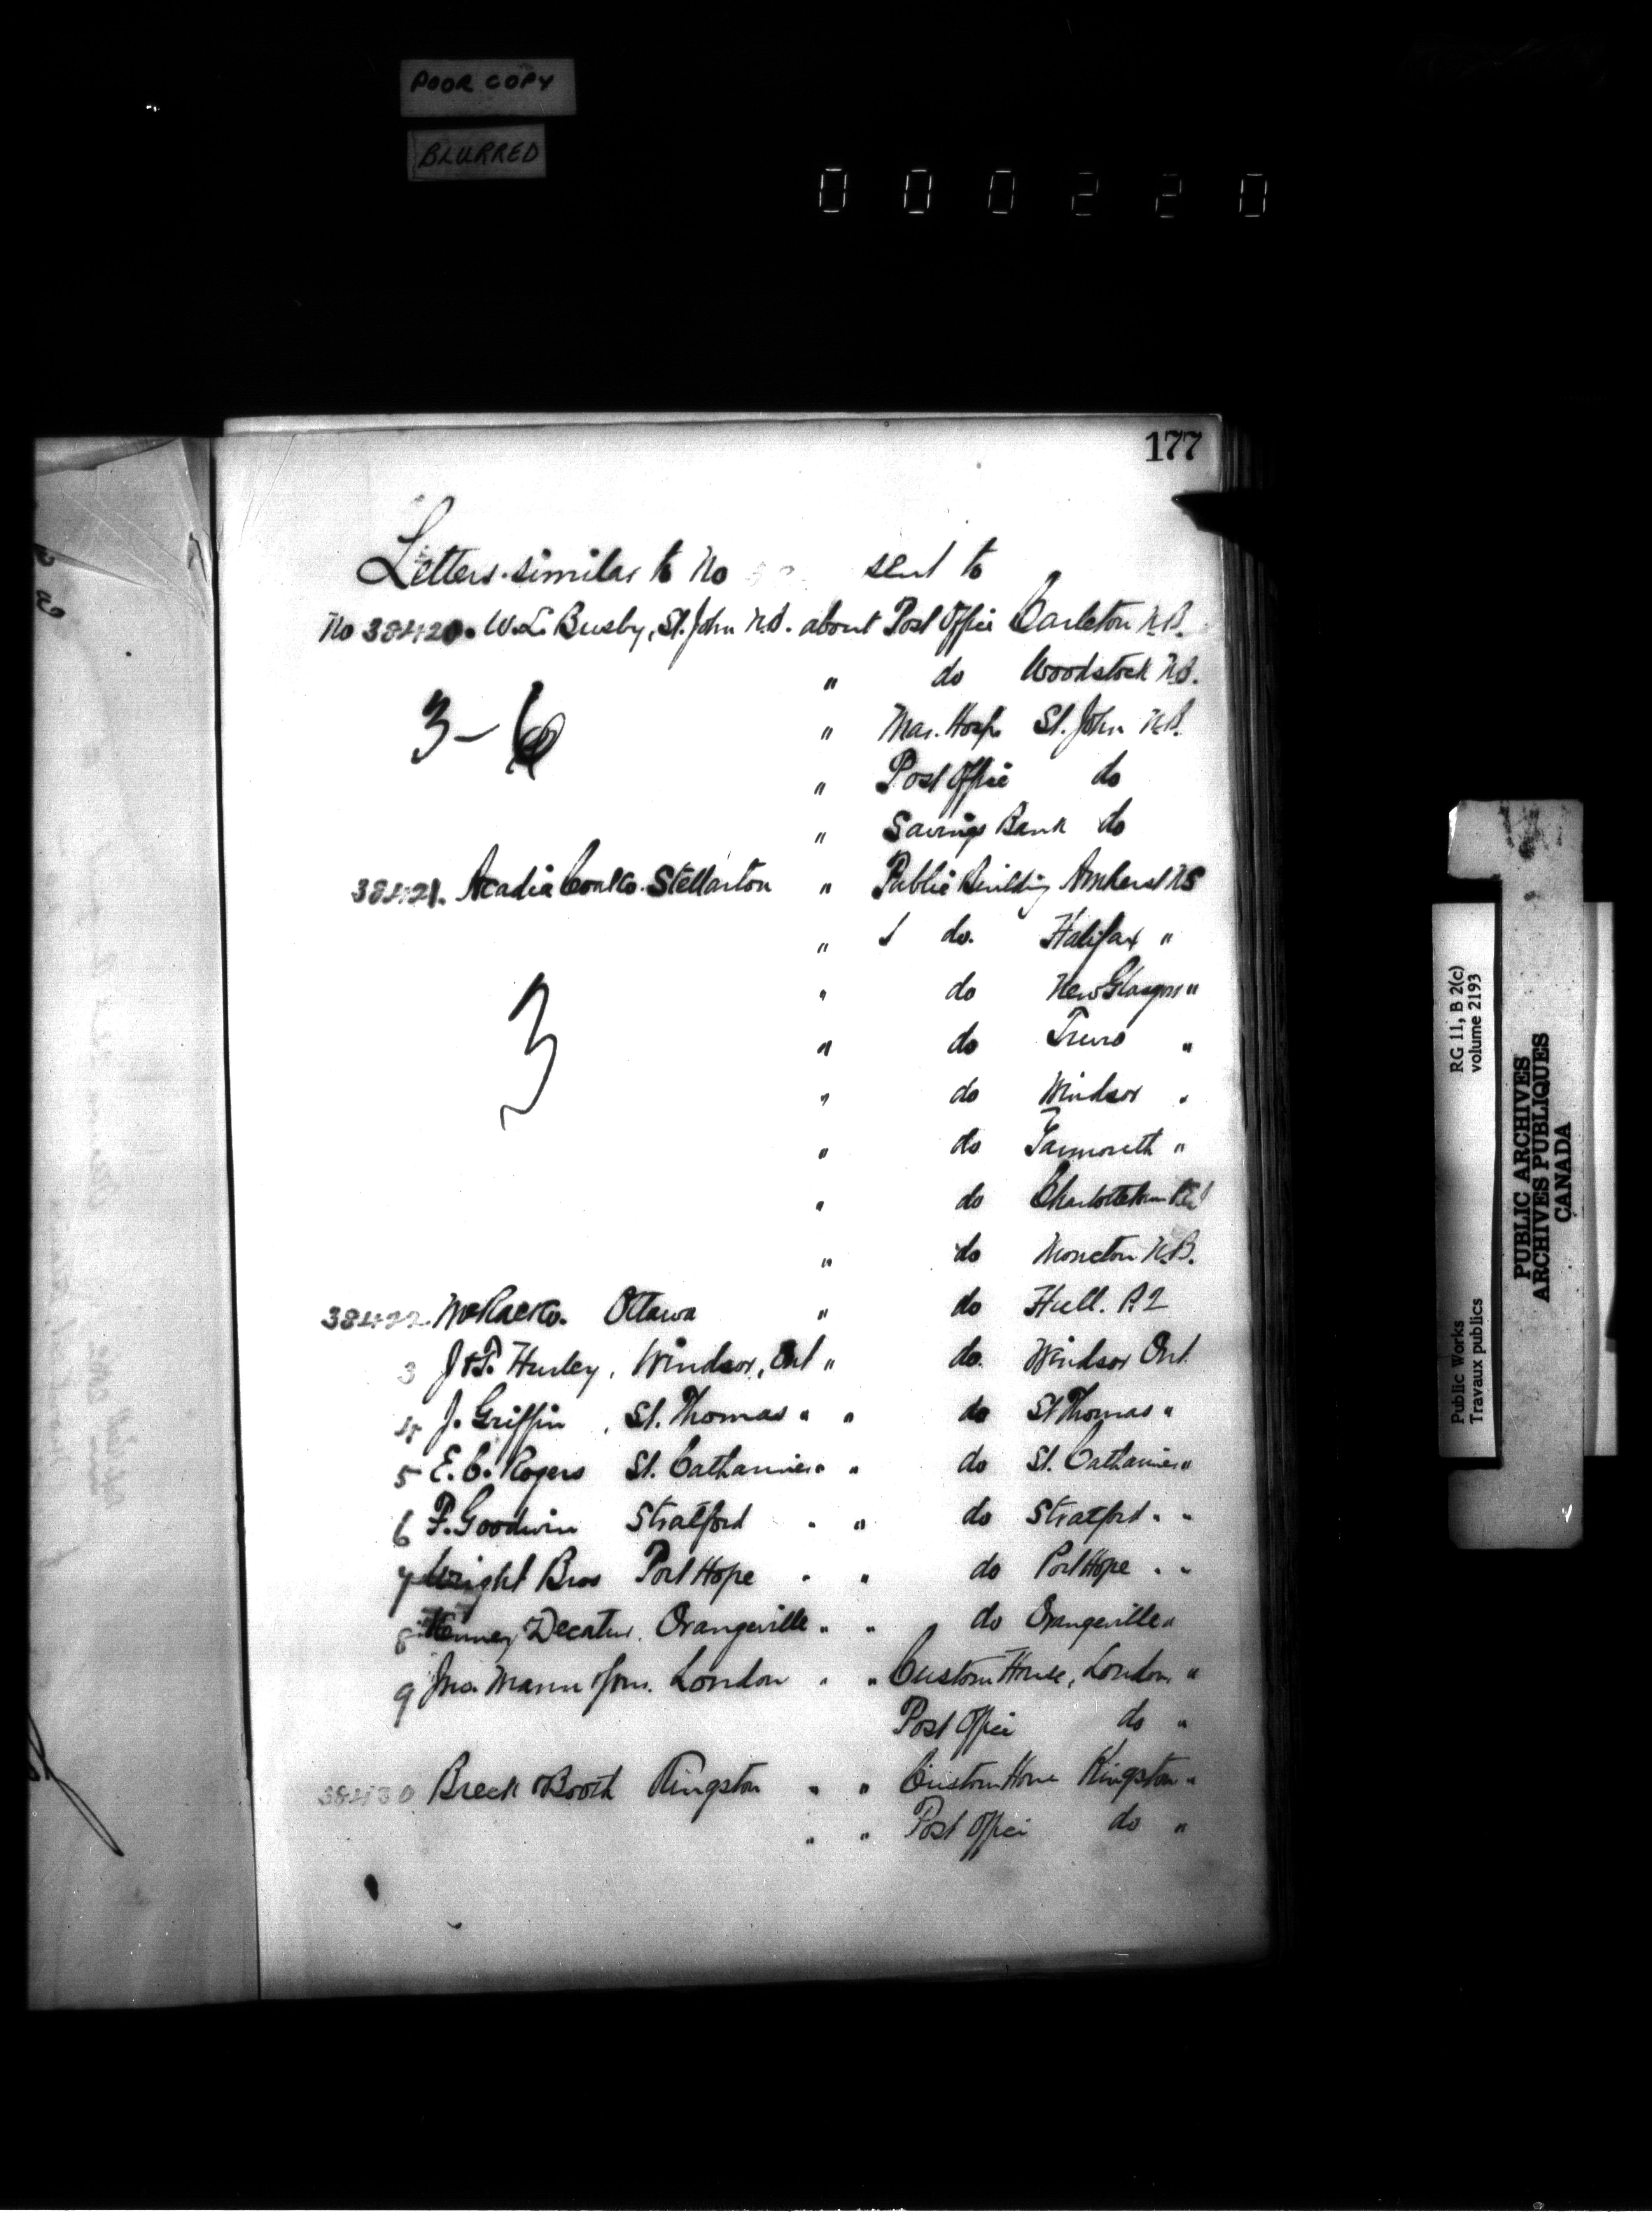 POOR COPY
BLURRED
000220
177
Letters similar to No sent to
No 38420. W. L. Busby, St. John N.B. about Post Office Carleton N.B.
" do Woodstock N.B.
3-6
" Mar. Hosp. St. John N.B.
" Post Office do
" Savings Bank do
38421. Acadia Coal Co. Stellarton " Public Building Amherst NS
" do. Halifax "
" do New Glasgow "
3
" do Truro "
" do Windsor "
" do Yarmouth "
" do Charlottetown PEI
" do Moncton N.B.
38422. McRae & Co. Ottawa " do Hull. P.Q
3 J & T. Hurley, Windsor, Ont " do. Windsor Ont.
4 J. Griffin, St. Thomas " " do St Thomas "
5 E. C. Rogers St. Catharines " " do St. Catharines "
6 F. Goodwin Stratford " " do Stratford " "
7 Wright Bros Port Hope " " do Port Hope " "
8 Decatur. Orangeville " " do Orangeville "
9 Jno. Mann & Sons. London " " Custom House, London "
Post Office do "
38430 Breck & Booth Kingston " " Custom House Kingston "
" " Post Office do "
Public Works RG 11, B 2(c)
Travaux publics volume 2193
PUBLIC ARCHIVES
ARCHIVES PUBLIQUES
CANADA